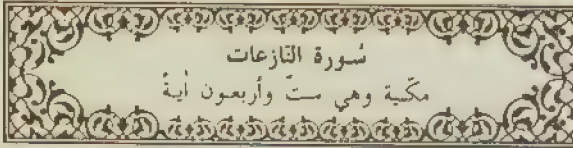 سورة النازعات
مكية وهي ست وأربعون آية